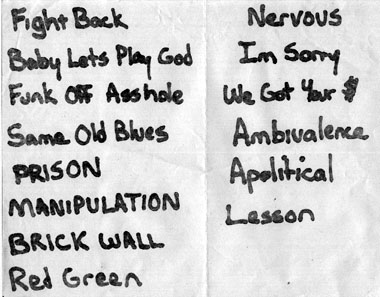 Fight Back
Baby Lets Play God
Funk Off Asshole
Same Old Blues
PRISON
MANIPULATION
BRICK WALL
Red Green
Nervous
Im Sorry
We Got Your $
Ambivalence
Apolitical
Lesson